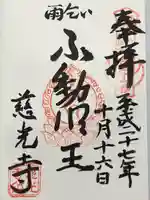 奉拝
平成二十七年
十月十六日
雨乞い
不動明王
慈光寺